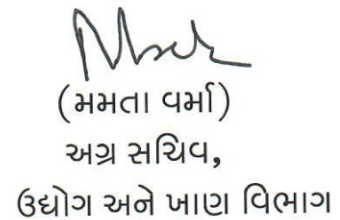 (મમતા વર્મા)
અગ્ર સચિવ,
ઉદ્યોગ અને ખાણ વિભાગ